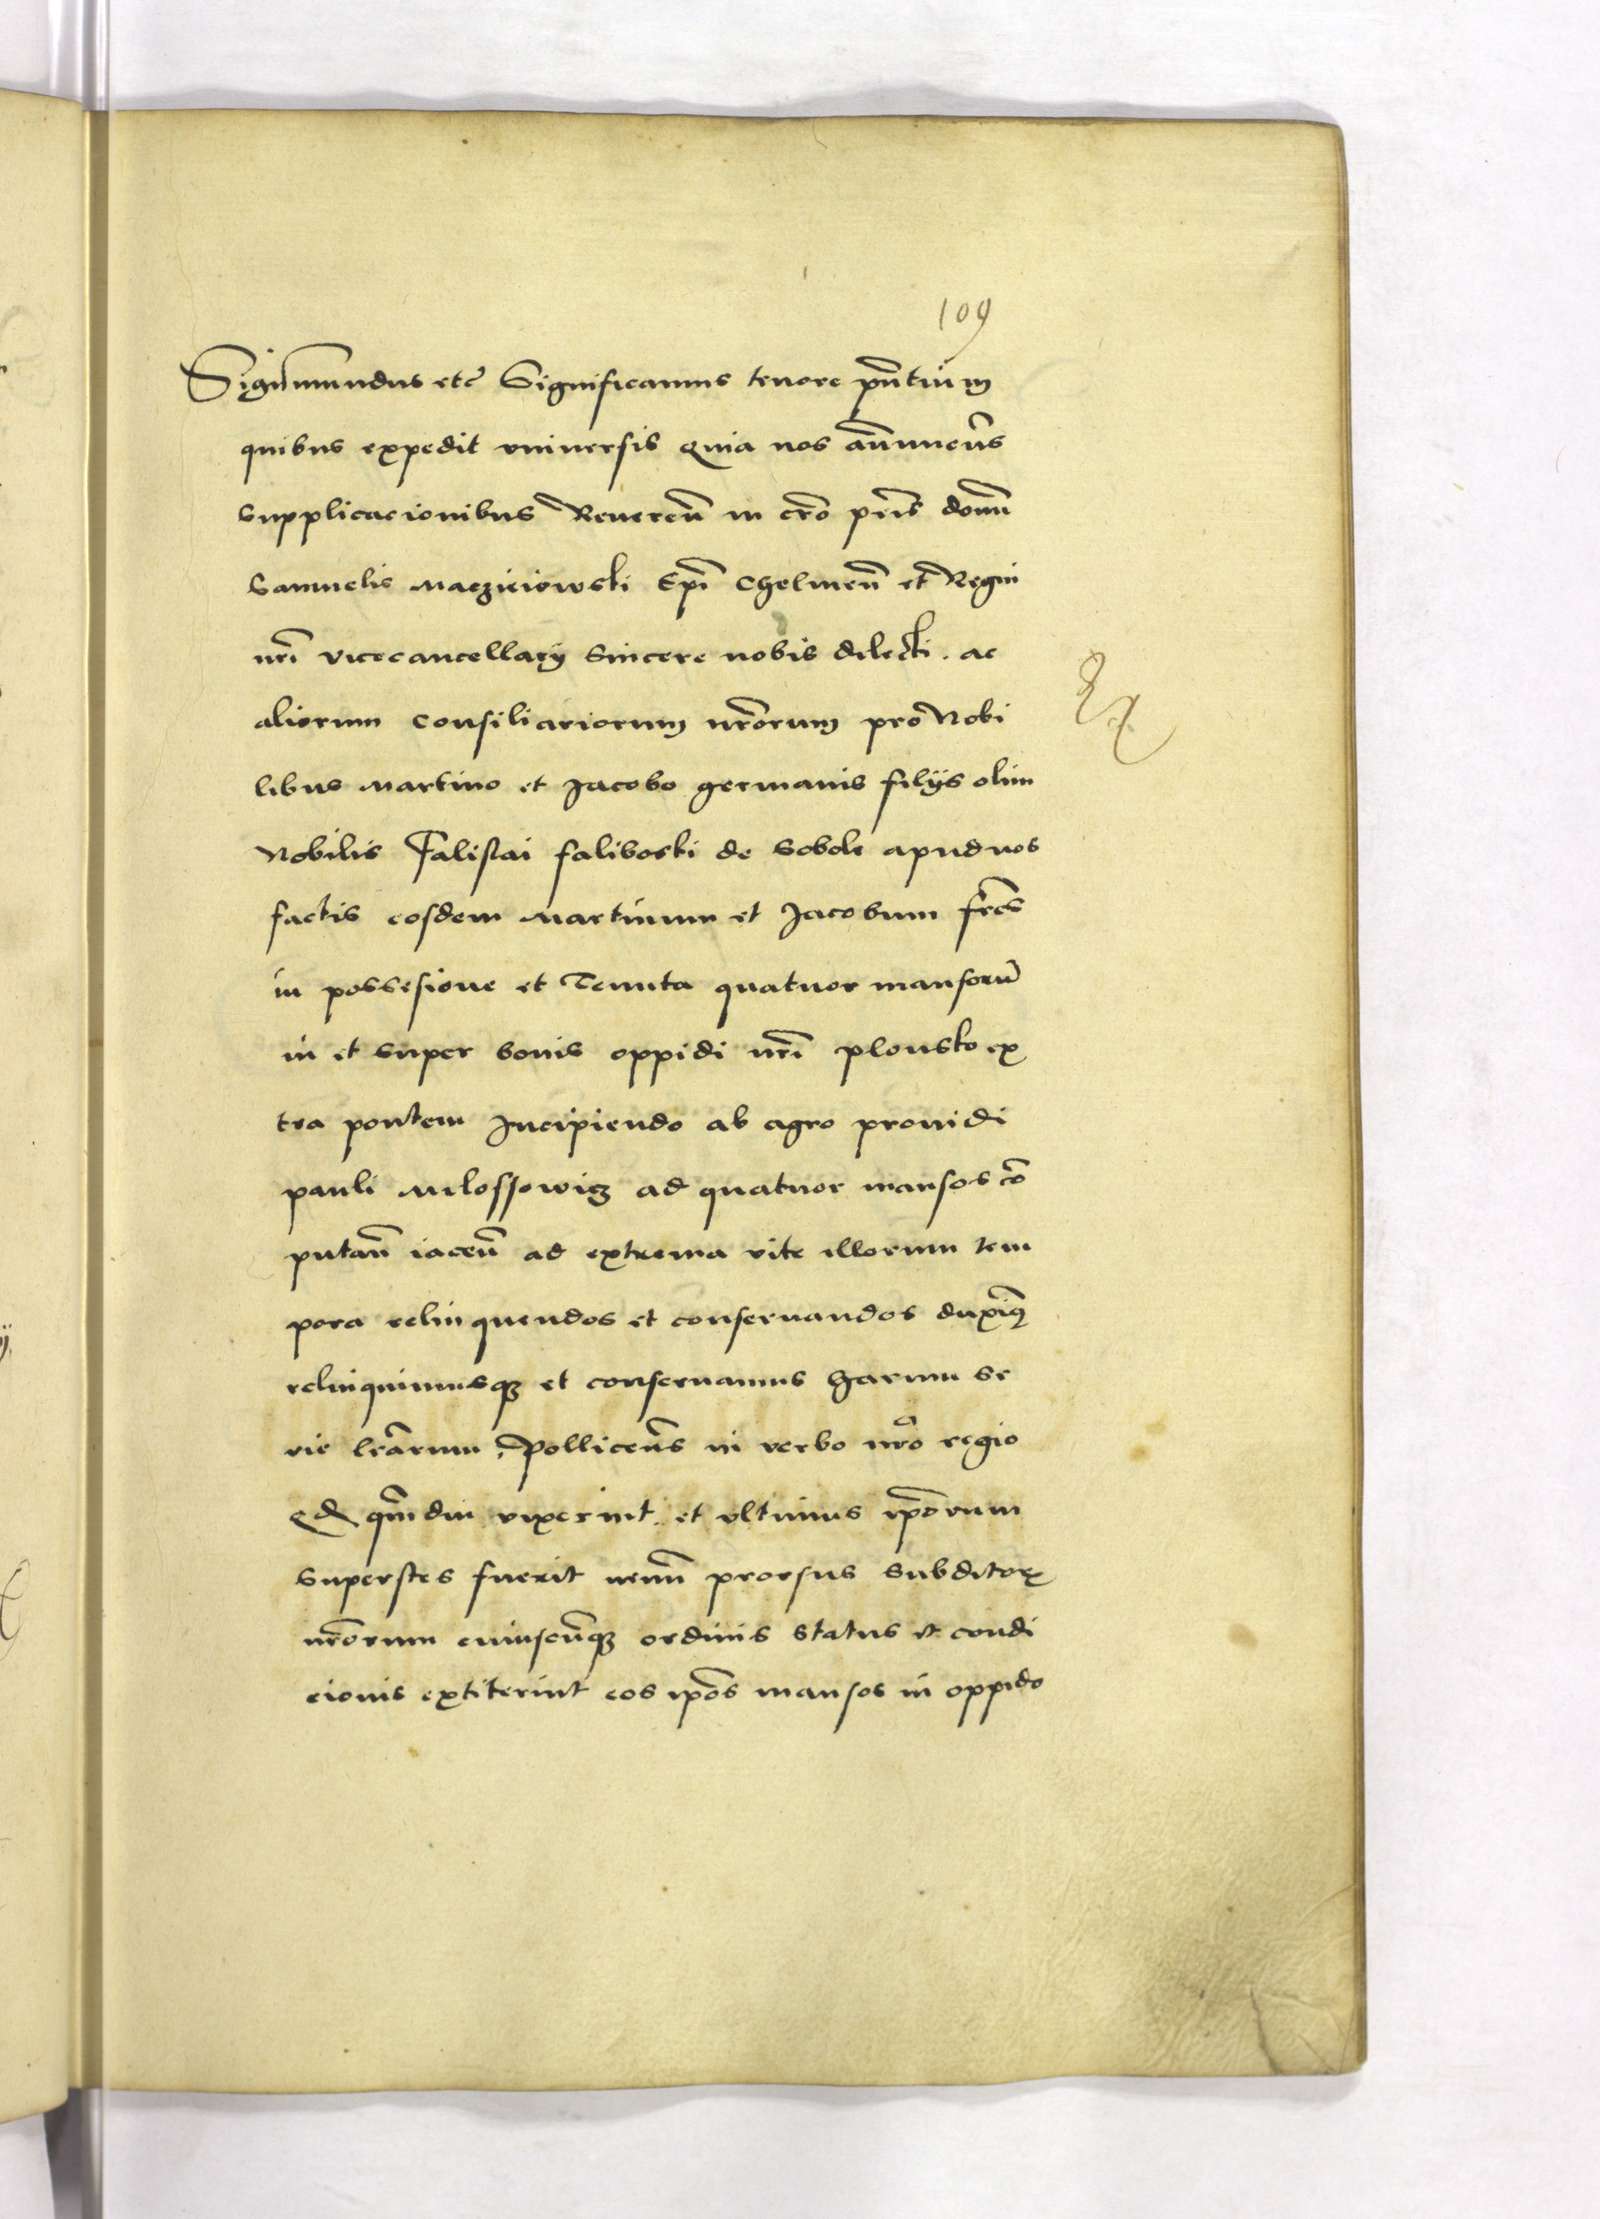 109
Sigismundus etc Significamus tenore pñtium
quibus expedit vniuersis Quia nos añnueñs
supplicacionibus Revereñ in cro pris domñ
Samuelis Maczieiowski Epi Chelmeñ et Regni
nri vicecancellary sincere nobis dilecti. ac
aliorum consiliariorum nrorum pro Nobi
libus Martino et Jacobo germanis filys olim
Nobilis Falislai faliboski de Sobole apud nos
factis eosdem Martinum et Jacobum fres
in possesione et Tenuta quatuor mansorũ
in et super bonis oppidi nri plonsko ex
tra pontem Incipiendo ab agro prouidi
pauli Milossowicz ad quatuor mansos cõ
putañ iaceñ ad extrema vite illorum tem
pora relinquendos et conseruandos duximꝰ
relinquimusqꝫ et conseruamus harum se
rie lrarum. Polliceñs in verbo nro regio
qd qmdiu vixerint. et vltimus ipõrum
superstes fuerit nemñ prorsus subditoꝝ
nrorum cuiuscũqꝫ ordinis status et condi
cionis extiterint eos ipõs mansos in oppido